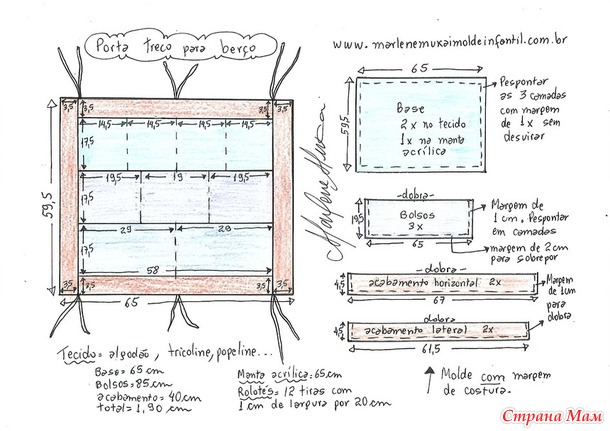 Porta treco para berço
www.marlenemukaimoldeinfantil.com.br
3,5
3,5
3,5
3,5
14,5 14,5 14,5 14,5
17,5
19,5 19 19,5
17,5
29 29
17,5
58
3,5
3,5
3,5
3,5
59,5
65
65
59,5
Base
2x no tecido
1x na manta
acrílica
Pespontar
as 3 camadas
com margem
de 1x sem
desvirar
Marlene Mukai
-dobra-
19,5
Bolsos
3x
65
Margem de
1cm. Pespontar
em camadas
margem de 2cm
para sobrepor
-dobra-
4,5
acabamento horizontal 2x
67
Margem
de 1cm
para
dobra
dobra
4,5
acabamento lateral 2x
61,5
Tecido= algodão, tricoline, popeline...
Base= 65 cm
Bolsos= 85cm
acabamento= 40cm
total= 1,90 cm
Manta acrílica: 65cm
Rolotês= 12 tiras com
1cm de largura por 20cm
Molde com margem
de costura.
Страна Мам